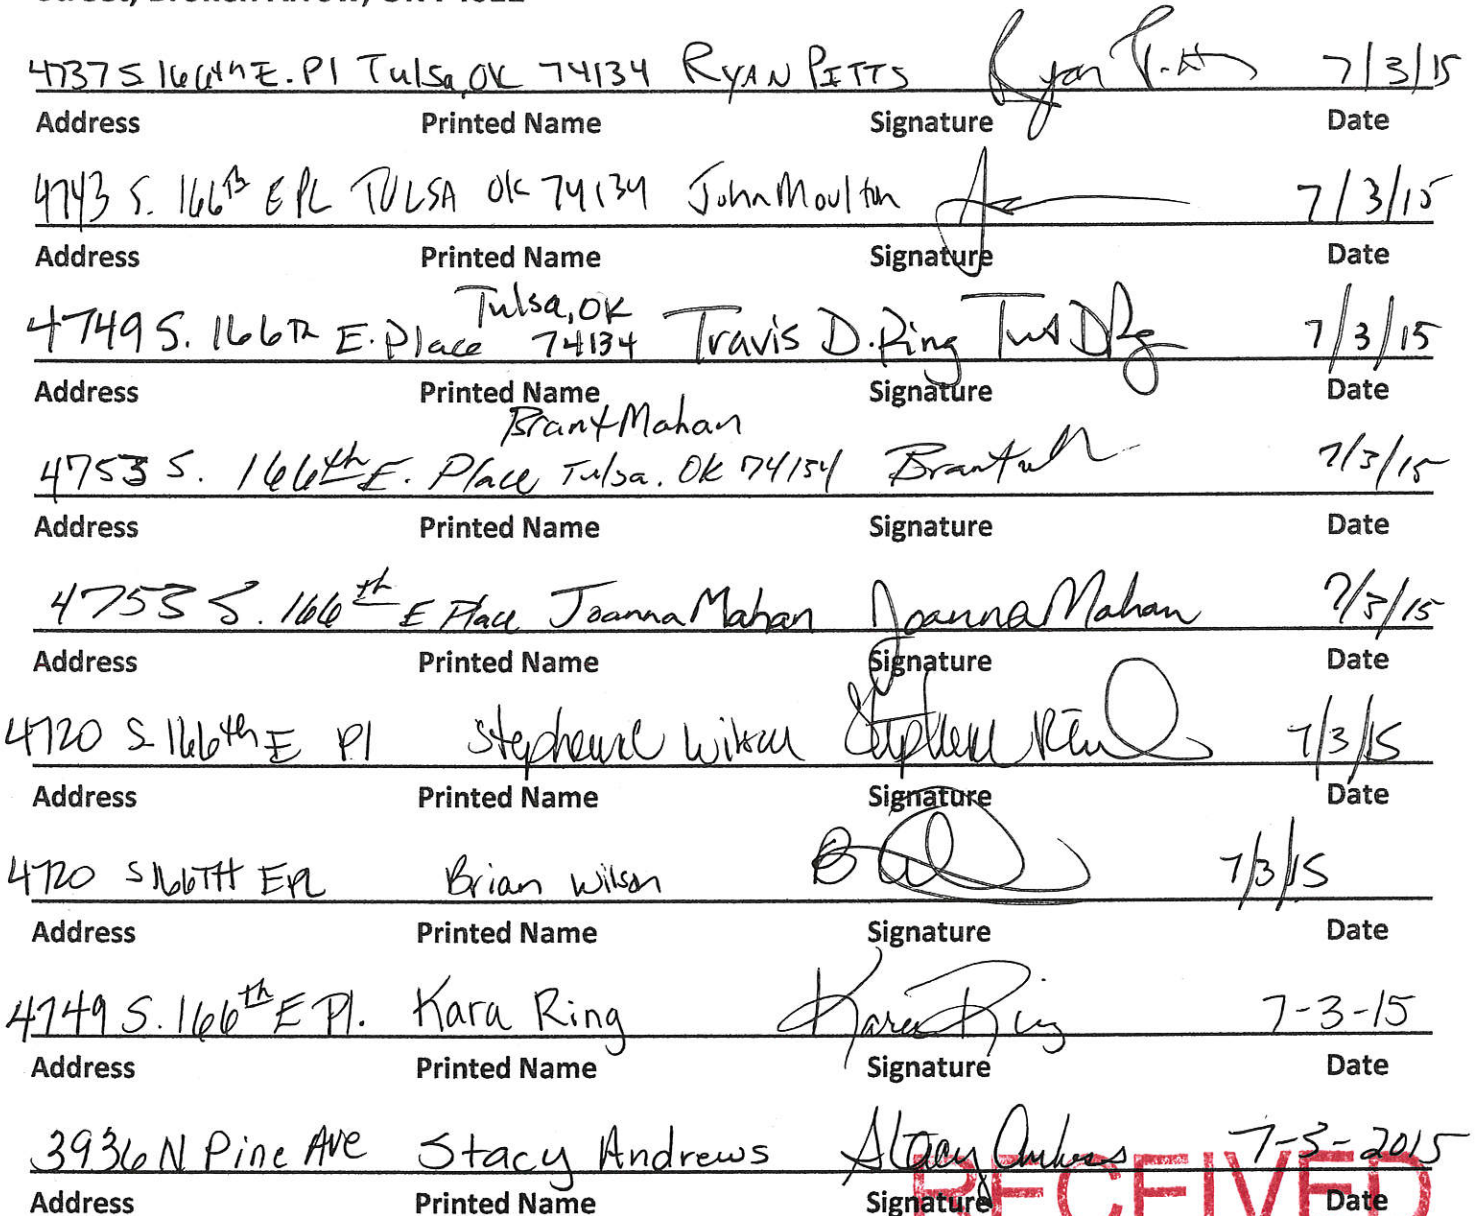 Street, Broken Arrow, OK 74012
4737 S 166th E. Pl Tulsa, OK 74134 RYAN PITTS Ryan Pitts 7/3/15
Address Printed Name Signature Date
4743 S. 166th E PL TULSA OK 74134 John Moulton 7/3/15
Address Printed Name Signature Date
Tulsa, OK
4749 S. 166Th E. Place 74134 Travis D. Ring 7/3/15
Address Printed Name Signature Date
Brant Mahan
4753 S. 166th E. Place Tulsa. OK 74134 Brant 7/3/15
Address Printed Name Signature Date
4753 S. 166th E Place Joanna Mahan Joanna Mahan 7/3/15
Address Printed Name Signature Date
4720 S 166th E Pl Stephanie Wilson 7/3/15
Address Printed Name Signature Date
4720 S 166TH E PL Brian Wilson 7/3/15
Address Printed Name Signature Date
4749 S. 166th E Pl. Kara Ring Kara Ring 7-3-15
Address Printed Name Signature Date
3936 N Pine Ave Stacy Andrews Stacy Andrews 7-3-2015
Address Printed Name Signature Date
RECEIVED